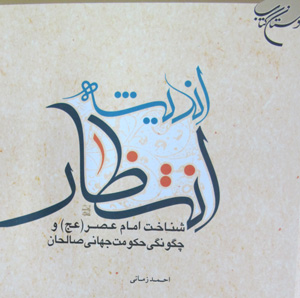 بوستان کتاب
اندیشه
انتظار
شناخت امام عصر (عج) و
چگونگی حکومت جهانی صالحان
احمد زمانی